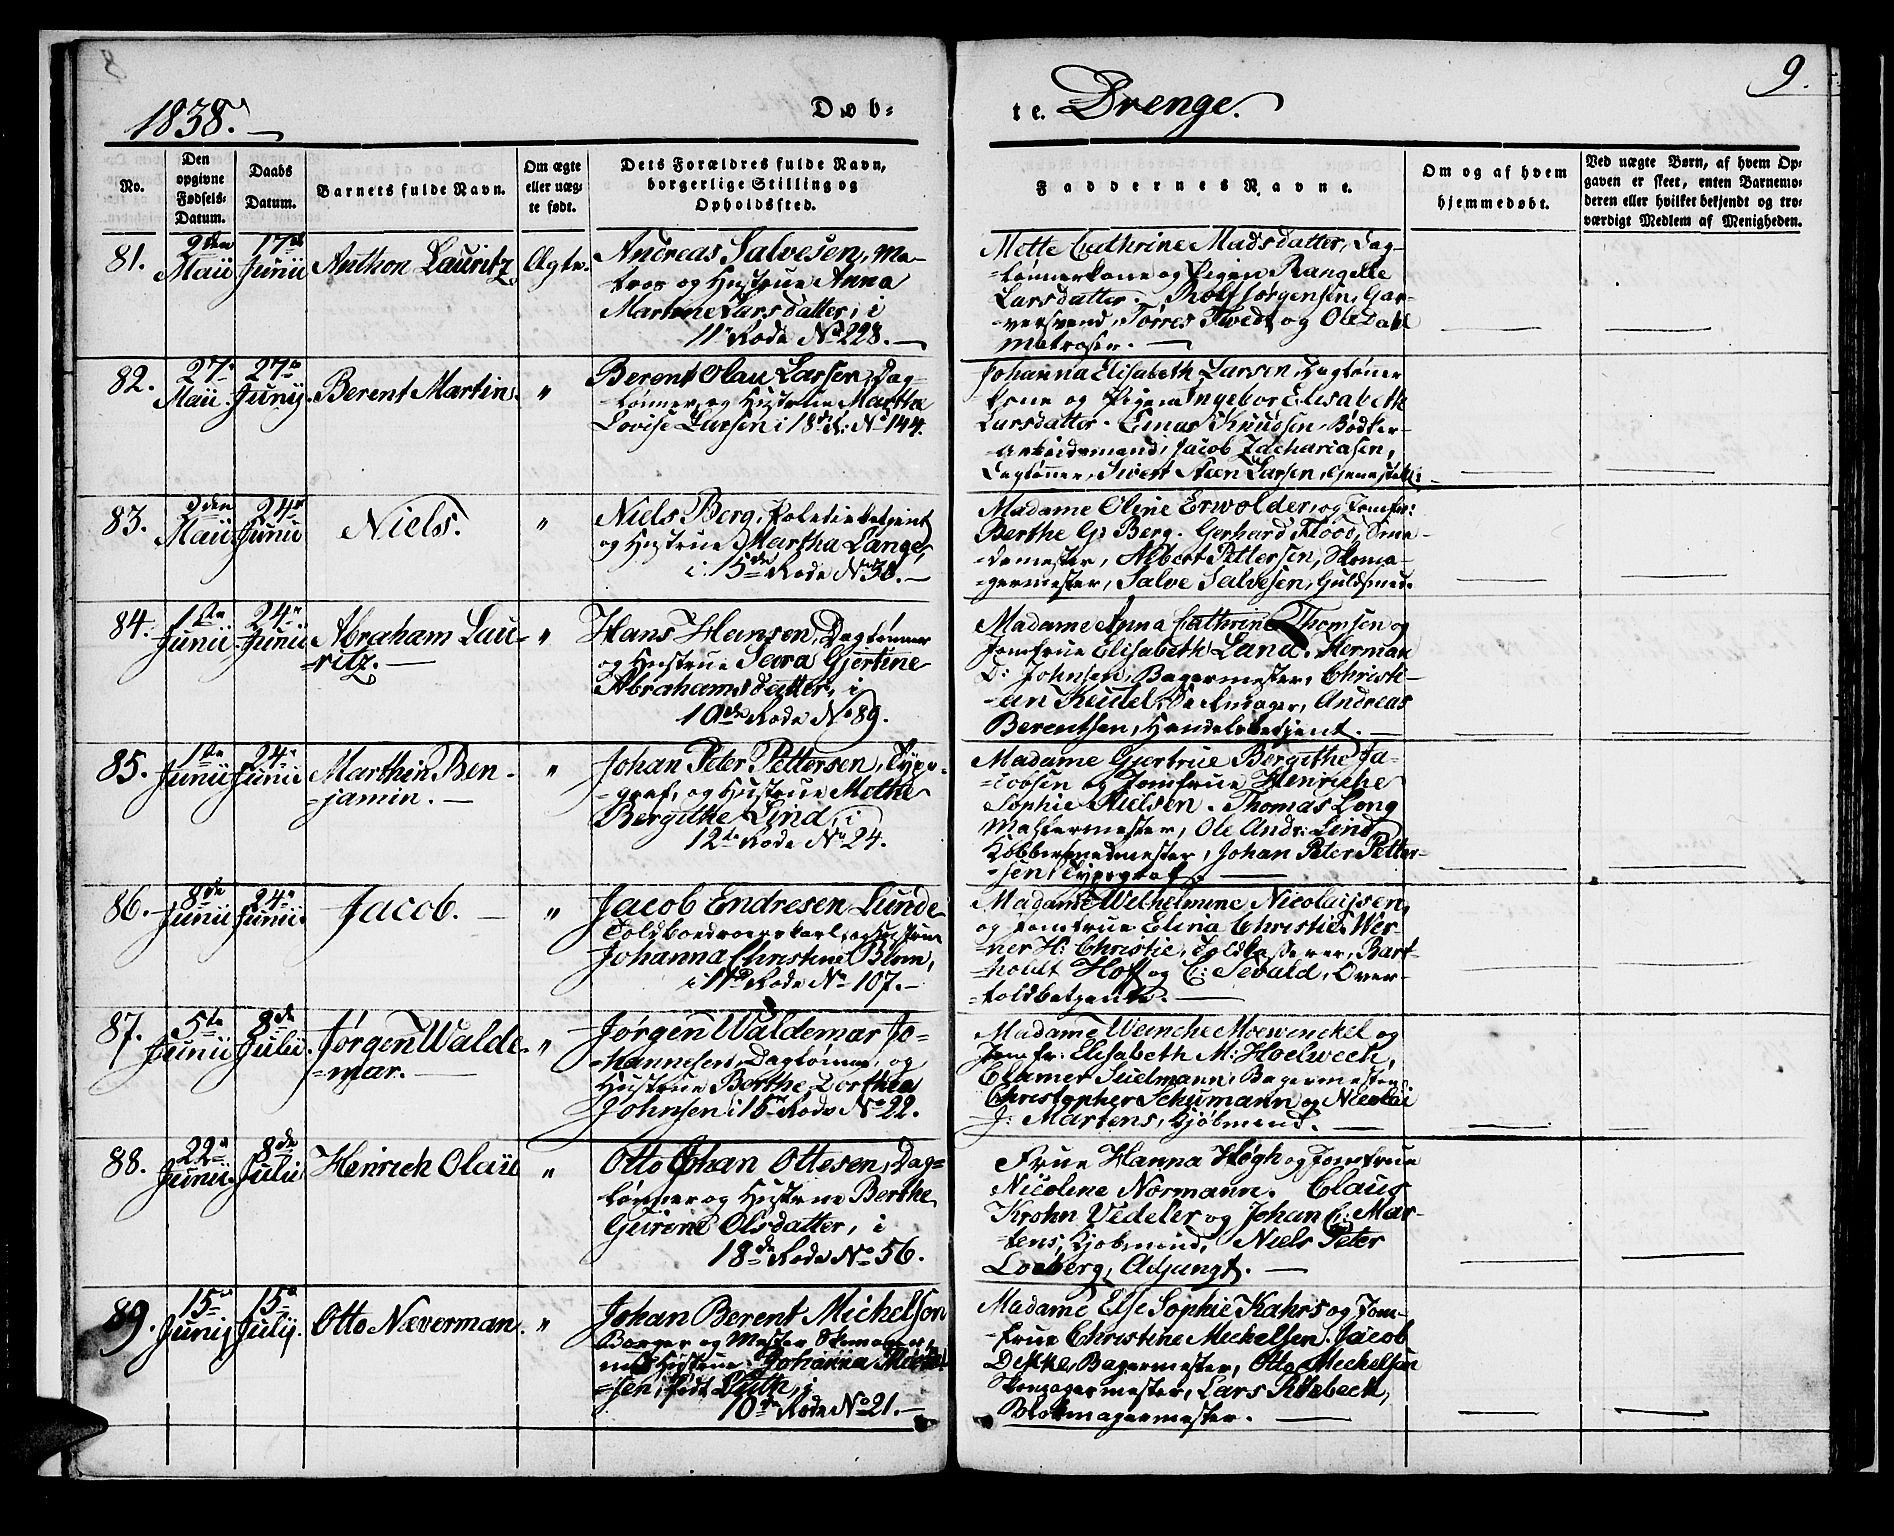 9.
1838.
Døb-
te. Drenge.
No.
Den opgivne Fødsels-Datum.
Daabs Datum.
Barnets fulde Navn.
Om ægte eller uæg-te født.
Dets Forældres fulde Navn, borgerlige Stilling og Opholdssted.
Faddernes Navne.
Om og af hvem hjemmedøbt.
Ved uægte Børn, af hvem Op-
gaven er skeet, enten Barnemo-
deren eller hvilket bekjendt og tro-
værdigt Medlem af Menigheden.
81.
2den Maii
17de Junii
Anthon Lauritz
Ægte.
Andreas Salvesen, Ma-
-tros og Hustrue Anna
Martine Larsdatter, i
11te Rode No 228.
Mette Cathrine Madsdatter, Dag-
-lønnerkone og Pigen Rangelle
Larsdatter. Rolf Jørgensen, Gar-
-versvend, Torres Tvedt og Ole Dahl
Matroser.
82.
27. Maii.
27de Junij.
Berent Martin.
"
Berent Olau Larsen, Dag-
-lønner og Hustrue Marthe
Lovise Larsen i 18de R: No 144.
Johanna Elisabeth Larsen, Dagløner
-kone og Pigen Ingebor Elisabeth
Larsdatter. Knudsen Bødker-
-arbeidsmand, Jacob Zachariasen,
Dagløner, Sivert Steen Larsen,
83.
2den Maii
24de Junii
Niels.
"
Niels Berg, Politiebetjent
og Hustrue Martha Lange,
i 15de Rode No 38.
Madame Oline Erwolder, og Jomfr:
Berthe G: Berg. Gerhard Flood, Sme-
-demester, Albert Pettersen, Skoma-
-germester, Salve Salvesen, Guldsmed.
84.
1ste Junii.
24de Junii
Abraham Lau-
-ritz.
"
Hans Hansen, Daglønner
og Hustrue Sara Gjertine
Abrahamsdatter, i
10de Rode No 89.
Madame Anna Cathrine Thomsen og
Jomfrue Elisabeth Land. Herman
D: Johnsen, Bagermester, Christi-
-an Keidel, Andreas
Berentsen, Handelsbetjent.
85.
1ste Junii
24de Junii
Marthin Ben-
-jamin.
"
Johan Peter Pettersen, Typo-
-graf, og Hustrue Mothe
Bergithe Lind, i
12te Rode No 24.
Madame Gjertrue Bergithe Ja-
-cobsen og Jomfrue Henriche
Sophie Nielsen. Thomas Long
Malermester, Ole Andr: Lind
Kobbersmedmester, Johan Peter Petter-
-sen, Typograf.
86.
8de Junii
24de Junii.
Jacob.
"
Jacob Endresen Lunde
Toldboedroerskarl, og Hustrue
Johanna Christine Blom,
i 11te Rode No 107.
Madame Wilhelmine Nicolaijsen,
og Jomfrue Elina Christie. Wer-
-ner H: Christie, Toldkasserer, Bart-
-holdt Hoff og C: Sevald, Over-
-toldbetjente.
87.
5te Junii
8de Julii.
Jørgen Walde-
-mar.
"
Jørgen Waldemar Jo-
-hannesen, Dagløner, og
Hustrue Berthe Dorthea
Johnsen i 16de Rode No 22.
Madame Wenche Moewinckel og
Jomfr: Elisabeth M: Holweck,
Clamer Suelmann, Bagermester,
Christopher Schumann og Nicolai
J: Martens, Kjøbmænd.
88.
22de Junii.
8de Julii
Heinrich Olaii
"
Otto Johan Ottesen, Dag-
-lønner og Hustrue Berthe
Guirene Olsdatter, i
18de Rode No 56.
Frue Hanna Høgh og Jomfrue
Nicoline Normann. Claus
Krohn Vedeler og Johan C: Mar-
-tens, Kjøbmænd, Niels Peter
Loeberg, Adjungt.
89.
15de Junij
15de Julij.
Otto Næverman.
"
Johan Berent Michelsen
Borger og Mester Skomager
med Hustrue Johanna
-sen, født Luth, i
10de Rode No 21.
Madame Else Sophie Kahrs og Jom-
-frue Christine Michelsen. Jacob
Dekke, Bagermester, Otto Mechelsen
Skomagermester, Lars Riisbeck,
Blokmagermester.